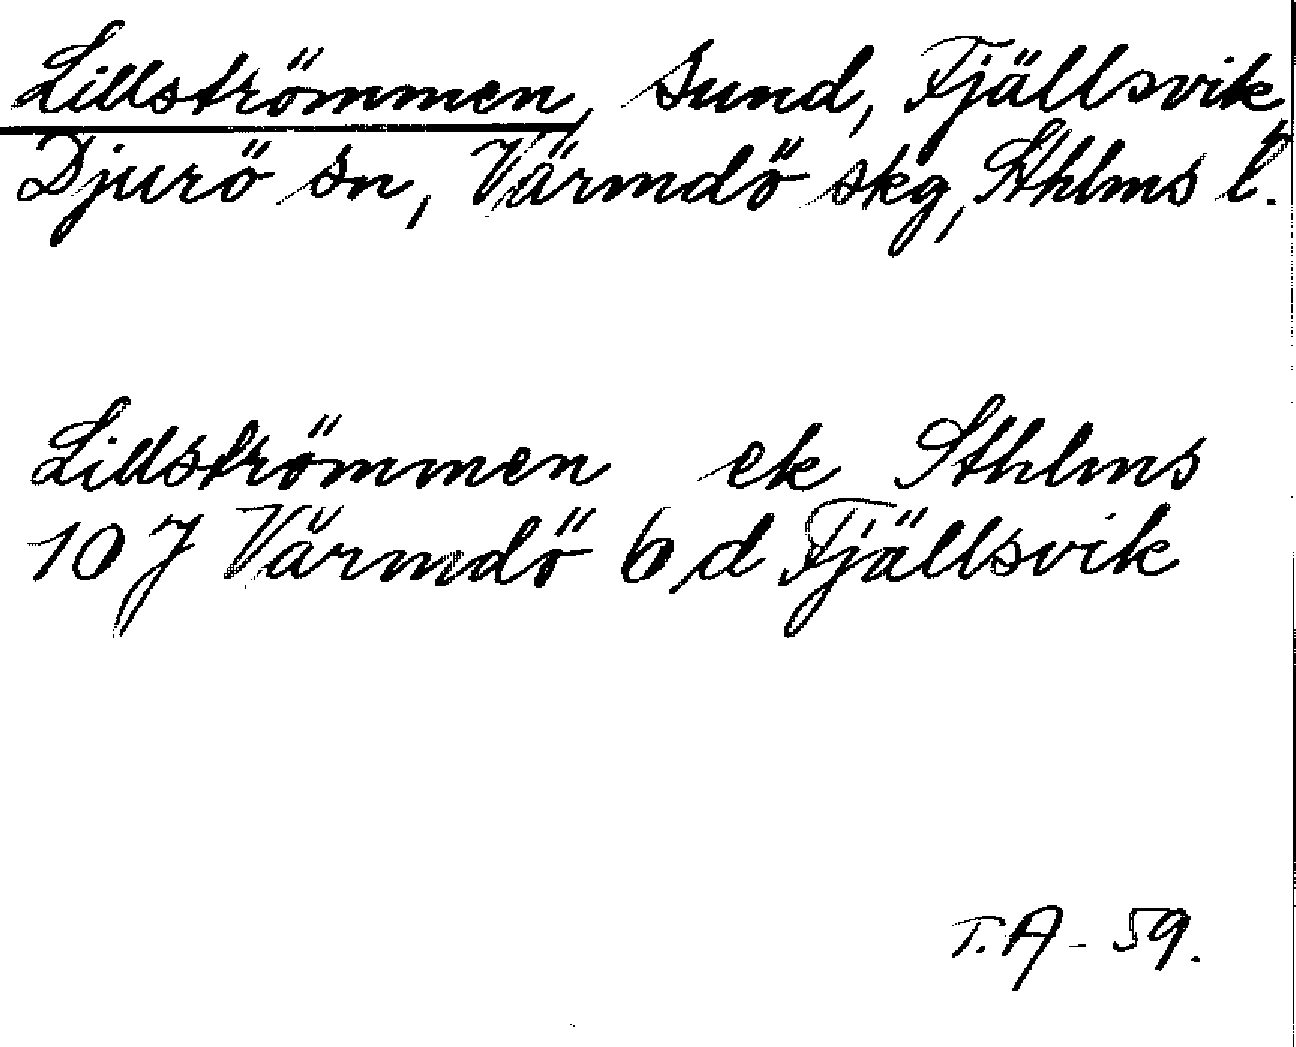 Lillströmmen, sund, Fjällsvik,
Djurö sn, Värmdö skg, Sthlms l.
Lillströmmen ek Sthlms
10 J Värmdö 6 d Fjällsvik
T.A - 59.